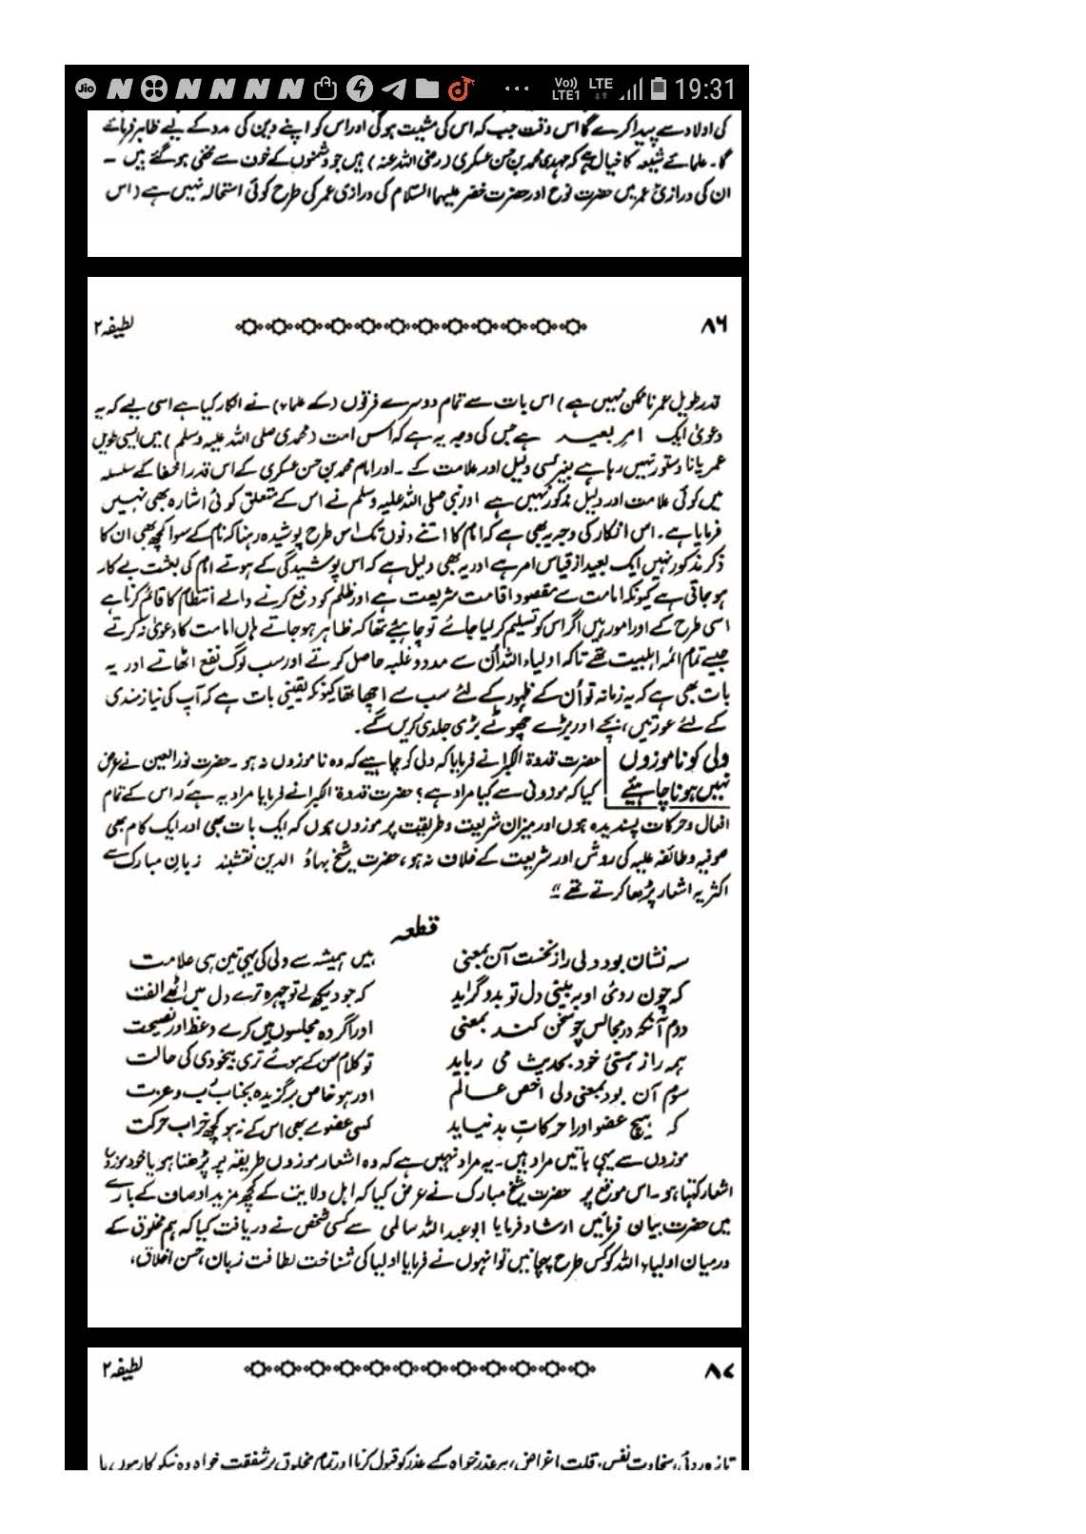 Jio Vo)) LTE1 LTE 19:31
کی اولاد سے پیدا کرے گا اس وقت جب کہ اس کی مشیت ہوگی اور اس کو اپنے دین کی مدد کے لیے ظاہر فرمائے
گا۔ علمائے شیعہ کا خیال ہے کہ مہدی محمد بن حسن عسکری (رضی اللہ عنہ) ہیں جو دشمنوں کے خوف سے مخفی ہو گئے ہیں ۔
ان کی درازیٔ عمر میں حضرت نوح اور حضرت خضر علیہما السلام کی درازی عمر کی طرح کوئی استحالہ نہیں ہے (اس
۸۶ لطیفہ ۲
قدر طویل عمر ناممکن نہیں ہے) اس بات سے تمام دوسرے فرقوں (کے علماء) نے انکار کیا ہے اسی لیے کہ یہ
دعویٰ ایک امر بعید ہے جس کی وجہ یہ ہے کہ اس امت (محمدی صلی اللہ علیہ وسلم) میں ایسی طویل
عمر پانا دستور نہیں رہا ہے بغیر کسی دلیل اور علامت کے ۔ اور امام محمد بن حسن عسکری کے اس قدر اخفا کے سلسلہ
میں کوئی علامت اور دلیل مذکور نہیں ہے اور نبی صلی اللہ علیہ وسلم نے اس کے متعلق کوئی اشارہ بھی نہیں
فرمایا ہے۔ اس انکار کی وجہ یہ بھی ہے کہ امام کا اتنے دنوں تک اس طرح پوشیدہ رہنا کہ نام کے سوا کچھ بھی ان کا
ذکر مذکور نہیں ایک بعید از قیاس امر ہے اور یہ بھی دلیل ہے کہ اس پوشیدگی کے ہوتے امام کی بعثت بے کار
ہو جاتی ہے کیونکہ امامت سے مقصود اقامت شریعت ہے اور ظلم کو دفع کرنے والے انتظام کا قائم کرنا ہے
اسی طرح کے اور امور ہیں اگر اس کو تسلیم کر لیا جائے تو چاہیئے تھا کہ ظاہر ہو جاتے ہاں امامت کا دعویٰ نہ کرتے
جیسے تمام ائمہ اہلبیت تھے تاکہ اولیاء اللہ ان سے مدد و غلبہ حاصل کرتے اور سب لوگ نفع اٹھاتے اور یہ
بات بھی ہے کہ یہ زمانہ تو اُن کے ظہور کے لئے سب سے اچھا تھا کیونکہ یقینی بات ہے کہ آپ کی نیازمندی
کے لئے عورتیں، بچے اور بڑے چھوٹے بڑی جلدی کریں گے۔
ولی کو ناموزوں حضرت قدوۃ الکبرا نے فرمایا کہ ولی کو چاہیے کہ وہ ناموزوں نہ ہو ۔ حضرت نورالعین نے عرض
نہیں ہونا چاہیئے کیا کہ موزونی سے کیا مراد ہے؟ حضرت قدوۃ الکبرا نے فرمایا مراد یہ ہے کہ اس کے تمام
افعال و حرکات پسندیدہ ہوں اور میزان شریعت و طریقت پر موزوں ہوں کہ ایک بات بھی اور ایک کام بھی
صوفیہ و طائفہ علیہ کی روش اور شریعت کے خلاف نہ ہو، حضرت شیخ بہاؤ الدین نقشبند زبان مبارک سے
اکثر یہ اشعار پڑھا کرتے تھے
قطعہ
سہ نشان بود ولی را ز نخست آن بمعنی ہیں ہمیشہ سے ولی کی یہی تین ہی علامت
کہ چون روئ او بہ بینی دل تو بدو گراید کہ جو دیکھ لے تو چہرہ ترے دل میں اٹھے الفت
دوم آنکہ در مجالس چو سخن کند بمعنی اور اگر وہ مجلسوں میں کرے وعظ اور نصیحت
ہمہ را ز ہستئ خود بحدیث می رباید تو کلام سن کے ہوئے تری بیخودی کی حالت
سوم آن بود بمعنی ولی اخص عالم اور ہو خاص برگزیدہ بجناب رب و عزت
کہ ہیچ عضو او را حرکات بد نیاید کسی عضو سے بھی اس کے نہ ہو کچھ خراب حرکت
موزوں سے یہی باتیں مراد ہیں۔ یہ مراد نہیں ہے کہ وہ اشعار موزوں طریقہ پر پڑھتا ہو یا خود موزوں
اشعار کہتا ہو ۔ اس موقع پر حضرت شیخ مبارک نے عرض کیا کہ اہل ولایت کے کچھ مزید اوصاف کے بارے
میں حضرت بیان فرمائیں ارشاد فرمایا ابوعبداللہ سالمی سے کسی شخص نے دریافت کیا کہ ہم مخلوق کے
درمیان اولیاء اللہ کو کس طرح پہچانیں تو انہوں نے فرمایا اولیا کی شناخت لطافت زبان، حسن اخلاق،
۸۷ لطیفہ ۲
تازہ روئی، سخاوت نفس، قلت اغراض، ہر عذر خواہ کے عذر کو قبول کرنا اور تمام مخلوق پر شفقت خواہ وہ نیکوکار ہوں یا